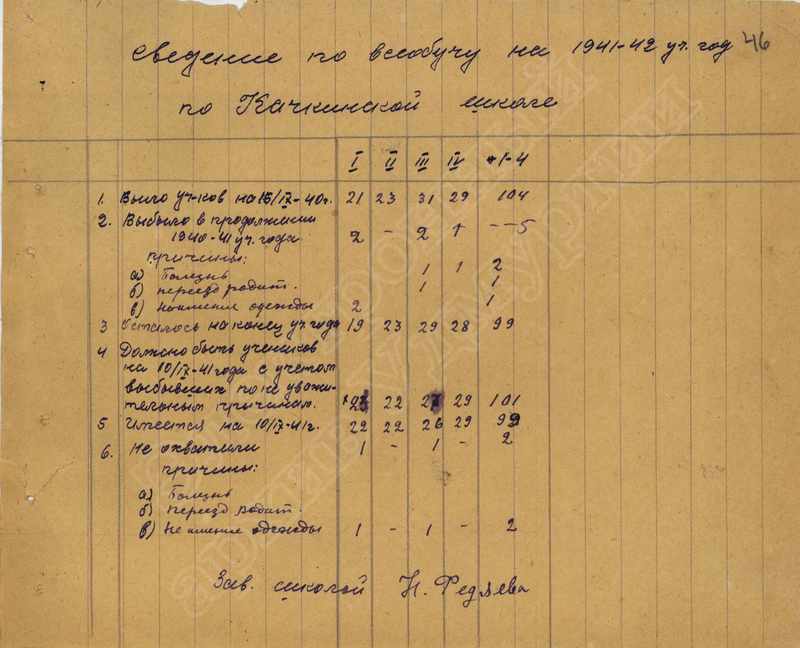 Сведение по всеобучу на 1941-42 уч. год 46
по Качкинской школе
I II III IV 1-4
1. Было уч-ков на 15/IX-40г. 21 23 31 29 104
2. Выбыло в продолжании
1940-41 уч. года 2 - 2 1 -- 5
причины:
а) Болезнь 1 1 2
б) переезд родит. 1 1
в) Неимения одежды 2 1
3 Осталось на конец уч. года 19 23 29 28 99
4 Должно быть учеников
на 10/IX-41 года с учетом
выбывших по не уважи-
тельным причинам. 23 22 27 29 101
5 Имеется на 10/IX-41г. 22 22 26 29 99
6. Не охватили 1 - 1 - 2
причины:
а) Болезнь
б) Переезд родит.
в) Не имение одежды 1 - 1 - 2
Зав. школой Н. Федяева